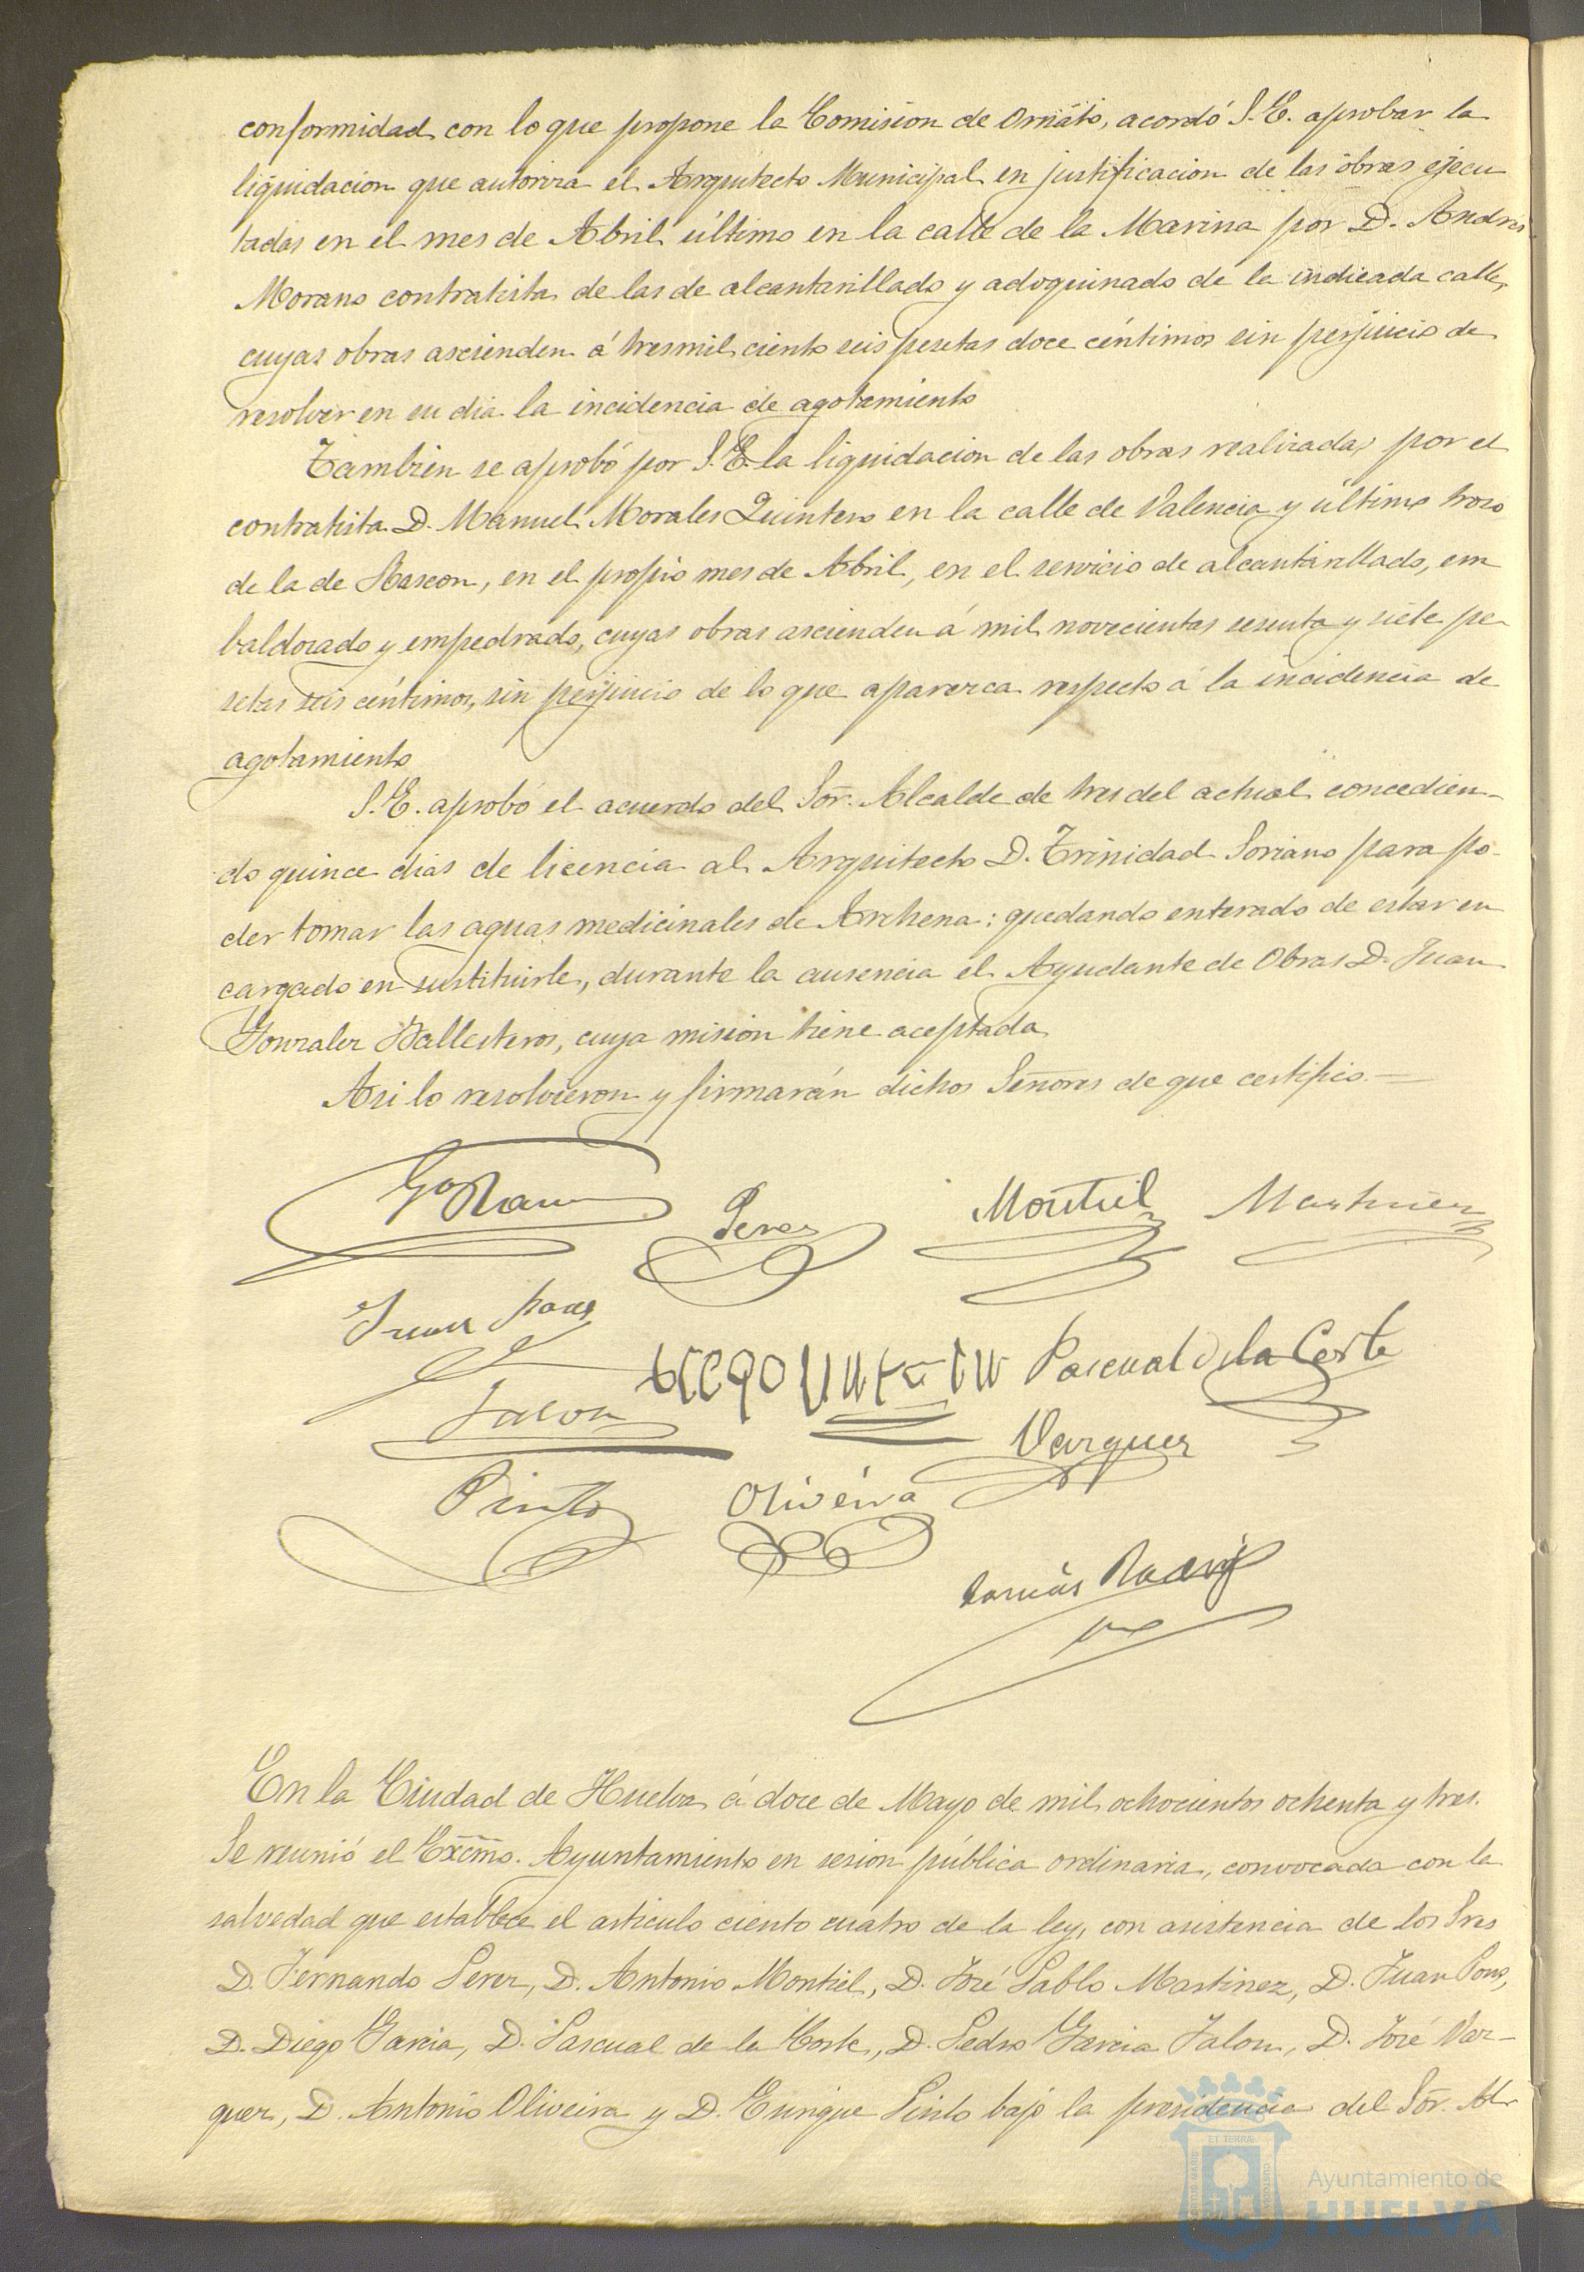 conformidad con lo que propone la Comision de Ornato, acordó S.E. aprobar la
liquidacion que autoriza el Arquitecto Municipal en justificacion de las obras ejecu
tadas en el mes de Abril último en la calle de la Marina por D. Andrés
Morano contratista de las de alcantarillado y adoquinado de la indicada calle,
cuyas obras ascienden á tresmil ciento seis pesetas doce céntimos sin perjuicio de
resolver en su dia la incidencia de agotamiento
Tambien se aprobó por S.E. la liquidacion de las obras realizadas por el
contratista D. Manuel Morales Quintero en la calle de Valencia y último trozo
de la de Rascon, en el propio mes de Abril, en el servicio de alcantarillado, em
baldosado y empedrado, cuyas obras ascienden á mil novecientas sesenta y siete pe
setas seis céntimos, sin perjuicio de lo que aparezca respecto á la incidencia de
agotamiento
S.E. aprobó el acuerdo del Sor. Alcalde de tres del actual concedien-
do quince dias de licencia al Arquitecto D. Trinidad Soriano para po-
der tomar las aguas medicinales de Archena: quedando enterado de estar en
cargado en sustituirle, durante la ausencia el Ayudante de Obras D. Juan
Gonzalez Ballesteros, cuya mision tiene aceptada
Asi lo resolvieron y firmarán dichos Señores de que certifico.—
Perez Montiel Martinez
Juan
Pascual de la Corte
Jalon
Vazquez
Pinto Oliveira
Tomás
En la Ciudad de Huelva á doce de Mayo de mil ochocientos ochenta y tres.
Se reunió el Excmo. Ayuntamiento en sesion pública ordinaria, convocada con la
salvedad que establece el artículo ciento cuatro de la ley, con asistencia de los Sres
D. Fernando Perez, D. Antonio Montiel, D. José Pablo Martinez, D. Juan Pons,
D. Diego Garcia, D. Pascual de la Corte, D. Pedro Garcia Jalon, D. José Vaz-
quez, D. Antonio Oliveira y D. Enrique Pinto bajo la presidencia del Sor. Al-
Ayuntamiento de
HUELVA